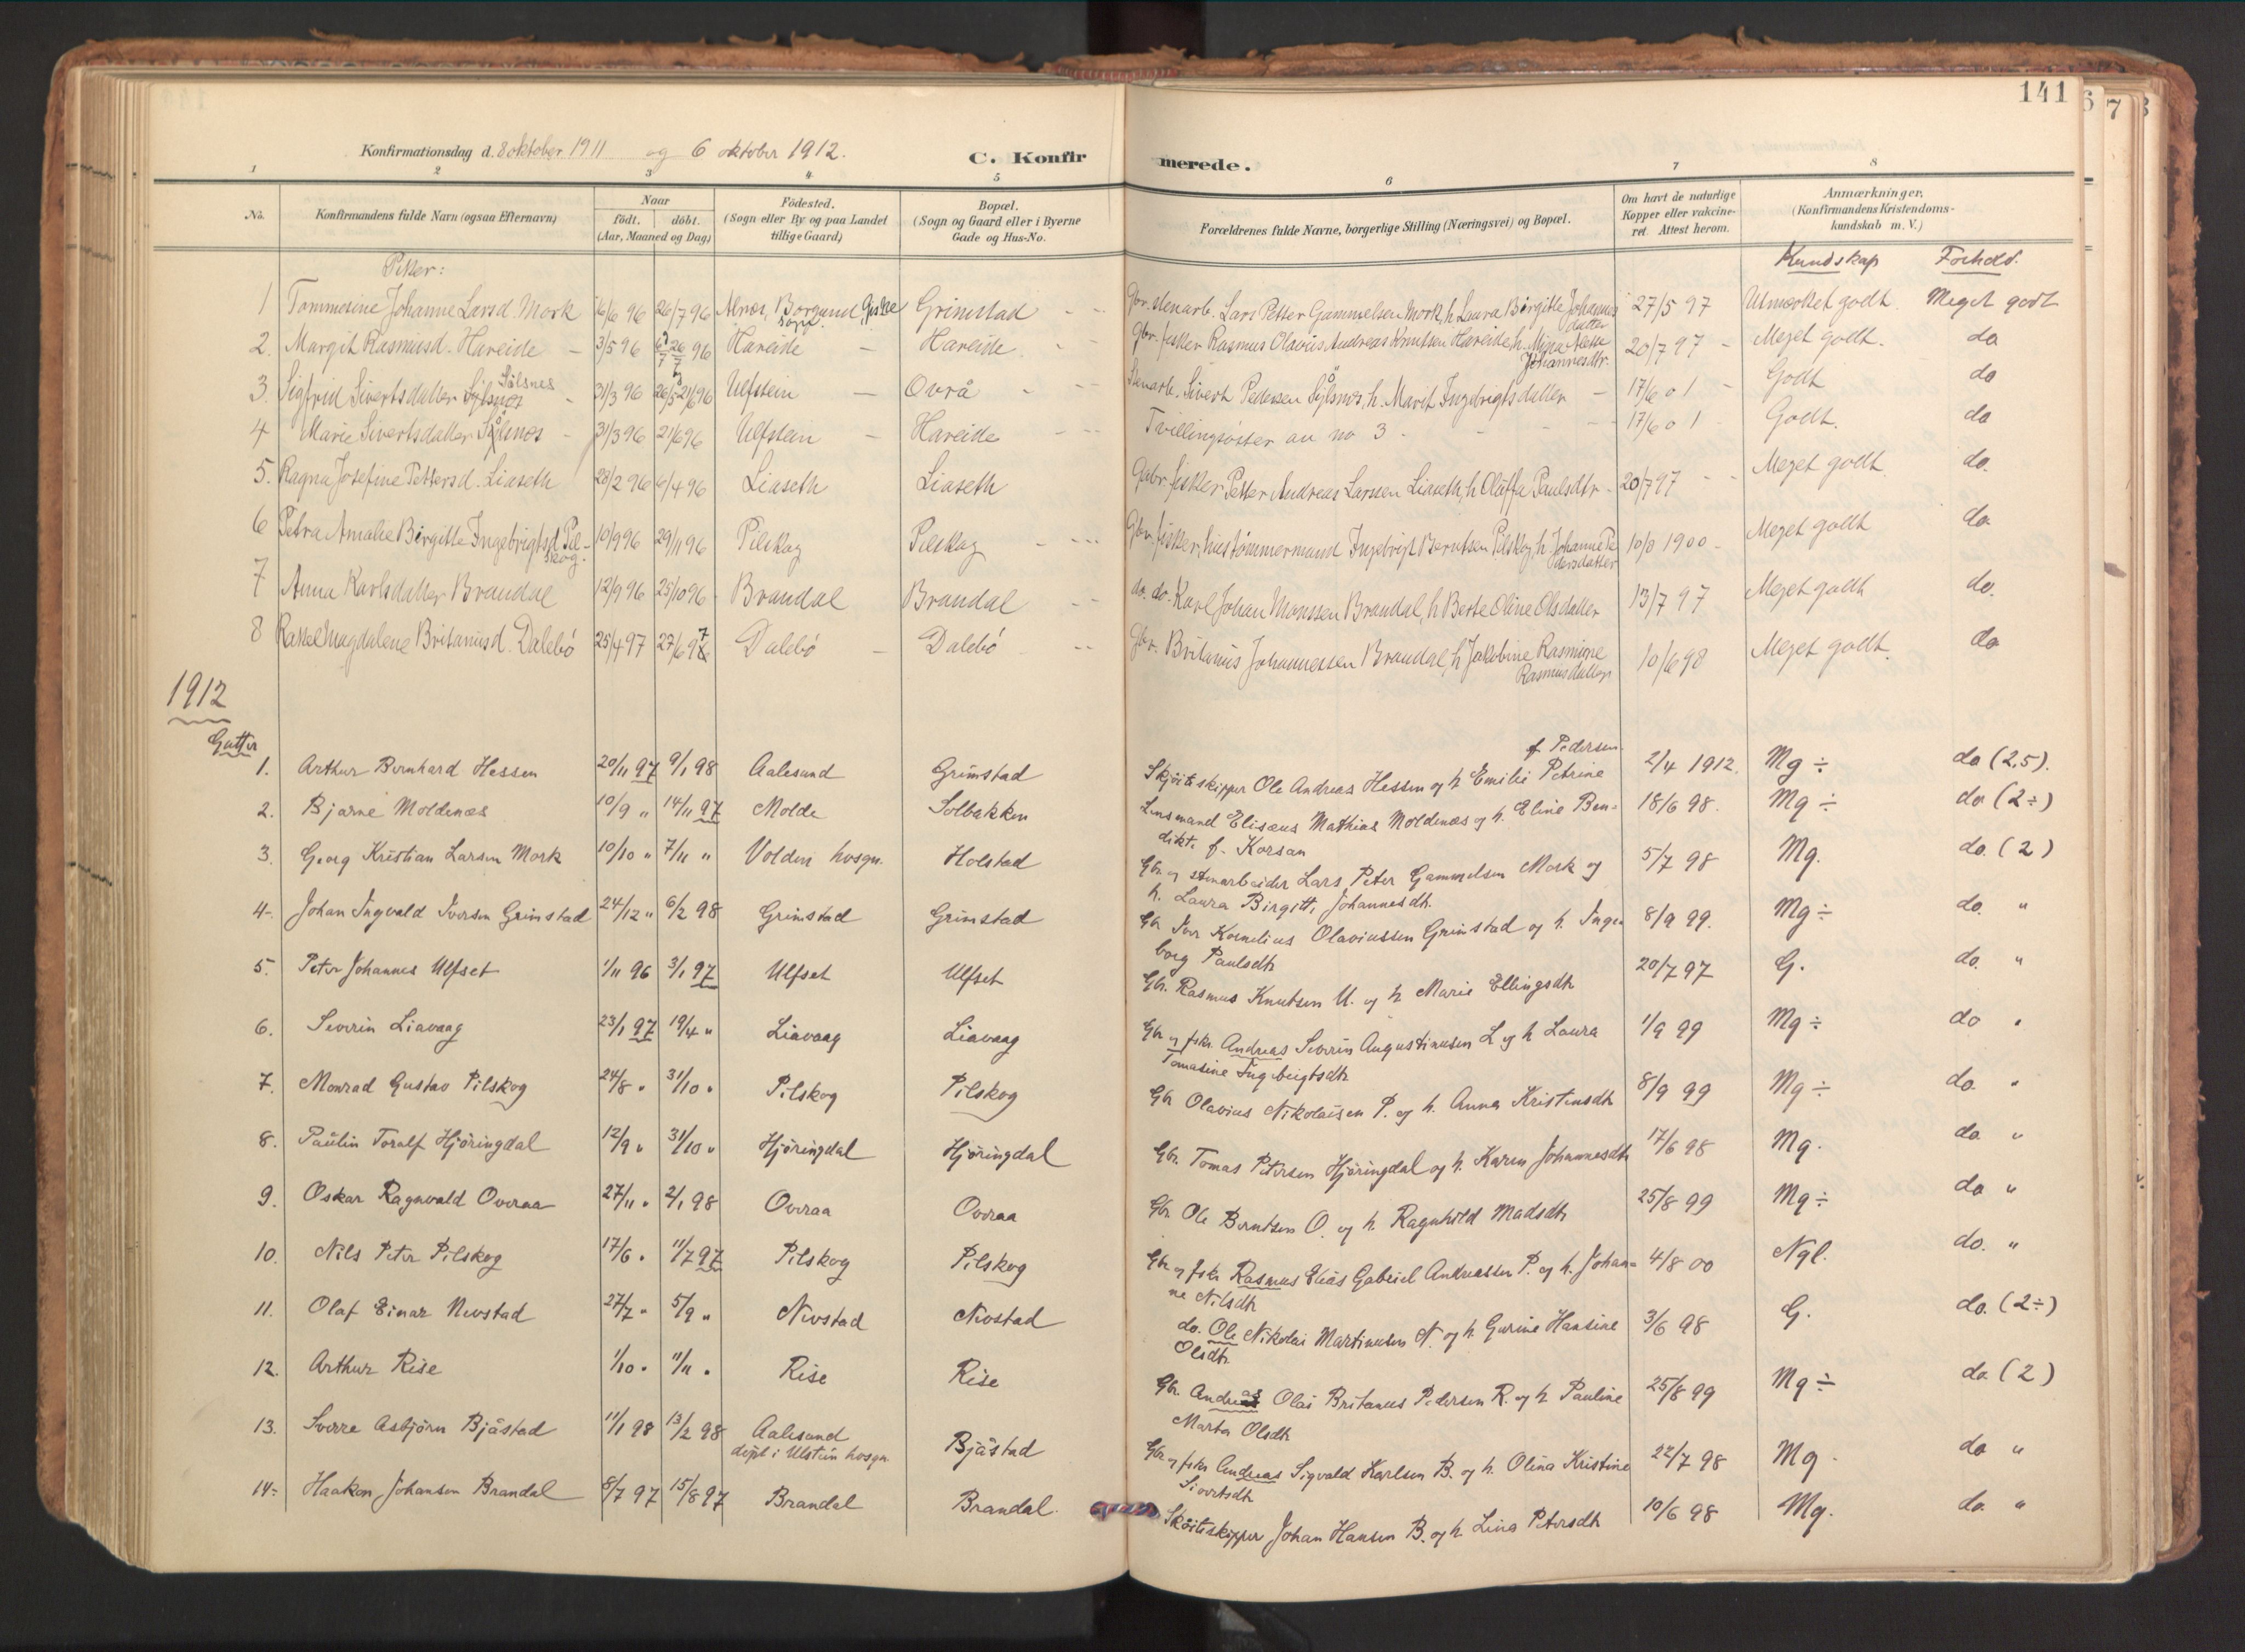 141
Konfirmationsdag d. 8 oktober 1911 og 6 oktober 1912.
C. Konfirmerede.
1 2 3 4 5 6 7 8
No.
Konfirmandens fulde Navn (ogsaa Efternavn)
Naar
födt. döbt.
(Aar, Maaned og Dag)
Födested.
(Sogn eller By og paa Landet
tillige Gaard)
Bopæl.
(Sogn og Gaard eller i Byerne
Gade og Hus-No.
Forældrenes fulde Navne, borgerlige Stilling (Næringsvei) og Bopæl.
Om havt de naturlige
Kopper eller vakcine-
ret. Attest herom.
Anmærkninger.
(Konfirmandens Kristendoms-
kundskab m. V.)
Piker:
Kundskap Forhold.
1 Tommesine Johanne Larsd. Mork 16/6 96 26/7 96 Alnes, Borgund Giske sogn Grimstad Gbr. stenarb. Lars Petter Gammelsen Mork, h. Laura Birgitte Johannes datter 27/5 97 Utmerket godt Meget godt
2. Margit Rasmusd. Hareide 3/5 96 26/7 96 Hareide Hareide Gbr. fisker Rasmus Olavius Andreas Knutsen Hareide, h. Johannesdtr. 20/7 97 Meget godt. do
3. Sigfrid Sivertsdatter Sølsnes 31/3 96 21/6 96 Ulfstein Ovrå Stenarb. Sivert Pedersen Sølsnes, h. Marit Ingebrigtsdatter 17/6 01 Godt do
4 Marie Sivertsdatter Sølsnes 31/3 96 21/6 96 Ulfstein Hareide Tvillingsøster av no 3 17/6 01 Godt. do
5. Ragna Josefine Pettersd. Liaseth 28/2 96 6/4 96 Liaseth Liaseth Gbr. fisker Petter Andreas Larssen Liaseth, h. Oluffa Paulsdtr 20/7 97 Meget godt do.
6 Petra Amalie Birgitte Ingebrigtsd. Pilskog 10/9 96 29/11 96 Pilskog Pilskog Gbr. fisker, hustømmermand Ingebrigt Berntsen Pilskog, h. Johanne Pedersdatter 10/8 1900 Meget godt do.
7 Anna Karlsdatter Brandal 12/9 96 25/10 96 Brandal Brandal do. do. Karl Johan Monssen Brandal, h. Berte Oline Olsdatter 13/7 97 Meget godt do.
8 Rakel Magdalene Britanusd. Dalebö 25/4 97 27/6 97 Dalebö Dalebö Gbr. Britanus Johannessen Brandal, h. Jakobine Rasmine Rasmusdatter 10/6 98 Meget godt. do
1912
Gutter
1. Arthur Bernhard Hessen 20/11 97 9/1 98 Aalesund Grimstad Skjöiteskipper Ole Andreas Hessen og h. Emilie Petrine f. Pedersen. 2/4 1912. Mg ÷ do (2,5).
2. Bjarne Moldenæs 10/9 " 14/11 97 Molde Solbakken Lensmand Elisæus Mathias Moldenæs og h. Eline Bendikte f. Korsan 18/6 98. Mg ÷ do (2÷)
3. Georg Kristian Larsen Mork 10/10 " 7/11 " Volden hosgn. Holstad Gbr. og stenarbeider Lars Peter Gammelsen Mork og h. Laura Birgitte Johannesdtr. 5/7 98 Mg. do. (2)
4. Johan Ingvald Iversen Grimstad 24/12 " 6/2 98 Grimstad Grimstad Gbr Iver Kornelius Olaviussen Grimstad og h. Ingeborg Paulsdtr 8/9 99. Mg ÷ do. "
5. Peter Johannes Ulfset 1/11 96 3/1 97 Ulfset Ulfset Gbr. Rasmus Knutsen U. og h. Marie Ellingsdtr 20/7 97 G. do. "
6. Severin Liavaag 23/1 97 19/4 " Liavaag Liavaag Gbr og fskr. Andreas Severin Augustinusen L og h Laura Tomasine Ingebrigtsdtr 1/9 99 Mg ÷ do "
7. Monrad Gustav Pilskog 24/8 " 31/10 " Pilskog Pilskog Gbr Olavius Nikolaisen P. og h. Anna Kristensdtr 8/9 99 Mg ÷ do. "
8. Paulin Toralf Hjöringdal 12/9 " 31/10 " Hjöringdal Hjöringdal Gbr. Tomas Petersen Hjöringdal og h. Karen Johannesdtr 17/6 98 Mg. do. "
9. Oskar Ragnvald Overaa 27/11 " 2/1 98 Overaa Overaa Gbr. Ole Berntsen O. og h. Ragnhild Madsdtr 25/8 99 Mg ÷ do "
10. Nils Peter Pilskog 17/6 " 11/7 97 Pilskog Pilskog Gbr og fskr Rasmus Elias Gabriel Andreassen P. og h. Johanne Nilsdtr 4/8 00 Ngl. do. "
11. Olaf Einar Nevstad 27/7 " 5/9 " Nevstad Nevstad do. Ole Nikolai Martinusen N. og h. Gurine Hansine Olsdtr 3/6 98 G. do. (2÷)
12. Arthur Rise 1/10 " 11/11 " Rise Rise Gbr. Andreas Olai Britanus Pedersen R. og h Pauline Marta Olsdtr 25/8 99 Mg ÷ do (2)
13. Sverre Asbjörn Bjåstad 11/1 98 13/2 98 Aalesund döpt i Ulstein hosgn. Bjåstad Gbr og fskr Andreas Sigvald Karlsen B. og h. Olina Kristine Sivertsdtr 22/7 98 Mg. do "
14. Haakon Johansen Brandal 8/7 97 15/8 97 Brandal Brandal. Sköiteskipper Johan Hansen B. og h. Lina Petersdtr 10/6 98 Mg. do "